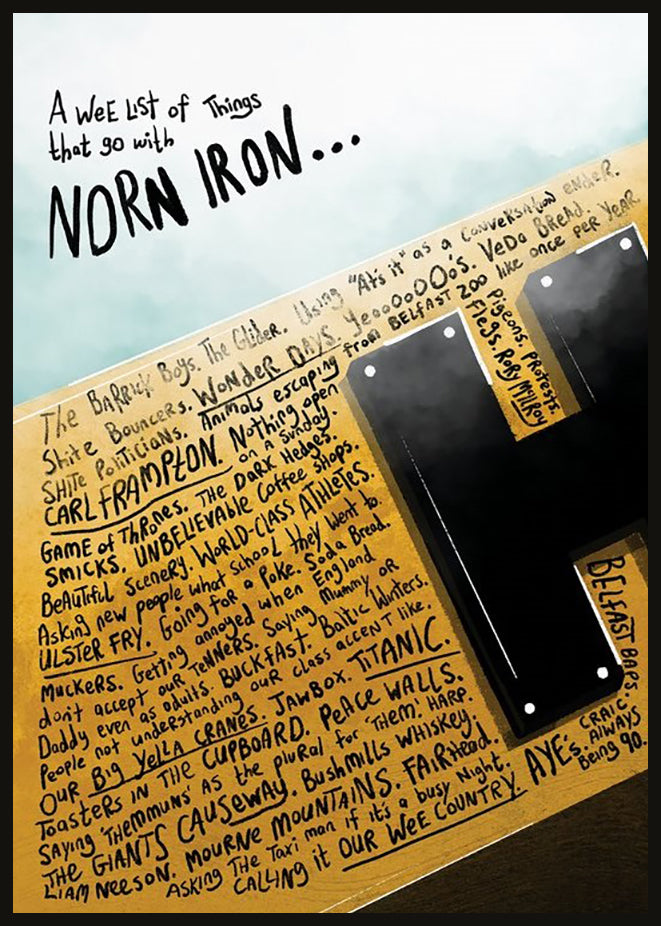 A WEE LIST of Things
that go with
NORN IRON...
The BARRICK Boys. The Glider. Using "At's it" as a conversation ender.
Shite Bouncers. WONDER DAYS. YeoooOoOOo's. VEDA BREAD.
SHITE Politicians. Animals escaping from BELFAST ZOO like once per YEAR
CARL FRAMPTON. Nothing open
on a Sunday.
Pigeons. PROTESTS.
Flegs. RORY McIlROY
GAME of THRONES. THE DARK Hedges.
SMICKS. UNBELIEVABLE Coffee shops.
BeAUTIFul Scenery. WORLD-CLASS AThleTES.
Asking new people what school they went to.
ULSTER FRY. Going for a Poke. Soda Bread.
MUCKERS. Getting annoyed when England
don't accept our TENNERS. Saying Mummy OR
Daddy even as adults. BUCKFAST. Baltic Winters.
People not understanding our class accent like.
OUR BIG YELLA CRANES. JAWBOX. TITANIC.
Toasters IN THE CUPBOARD. PEACE WALLS.
SAYING 'THEMMUNS' AS the pluRal for 'THEM'. HARP.
THE GIANTS CAUSEWAY. BUSHMILLS WHISKEY.
LIAM NEESON. MOURNE MOUNTAINS. FAIRHEAD.
ASKING THE Taxi man if it's a busy Night.
CALLING it OUR WEE COUNTRY. AYE's.
BELFAST BAPS.
CRAIC.
ALWAYS
Being 90.